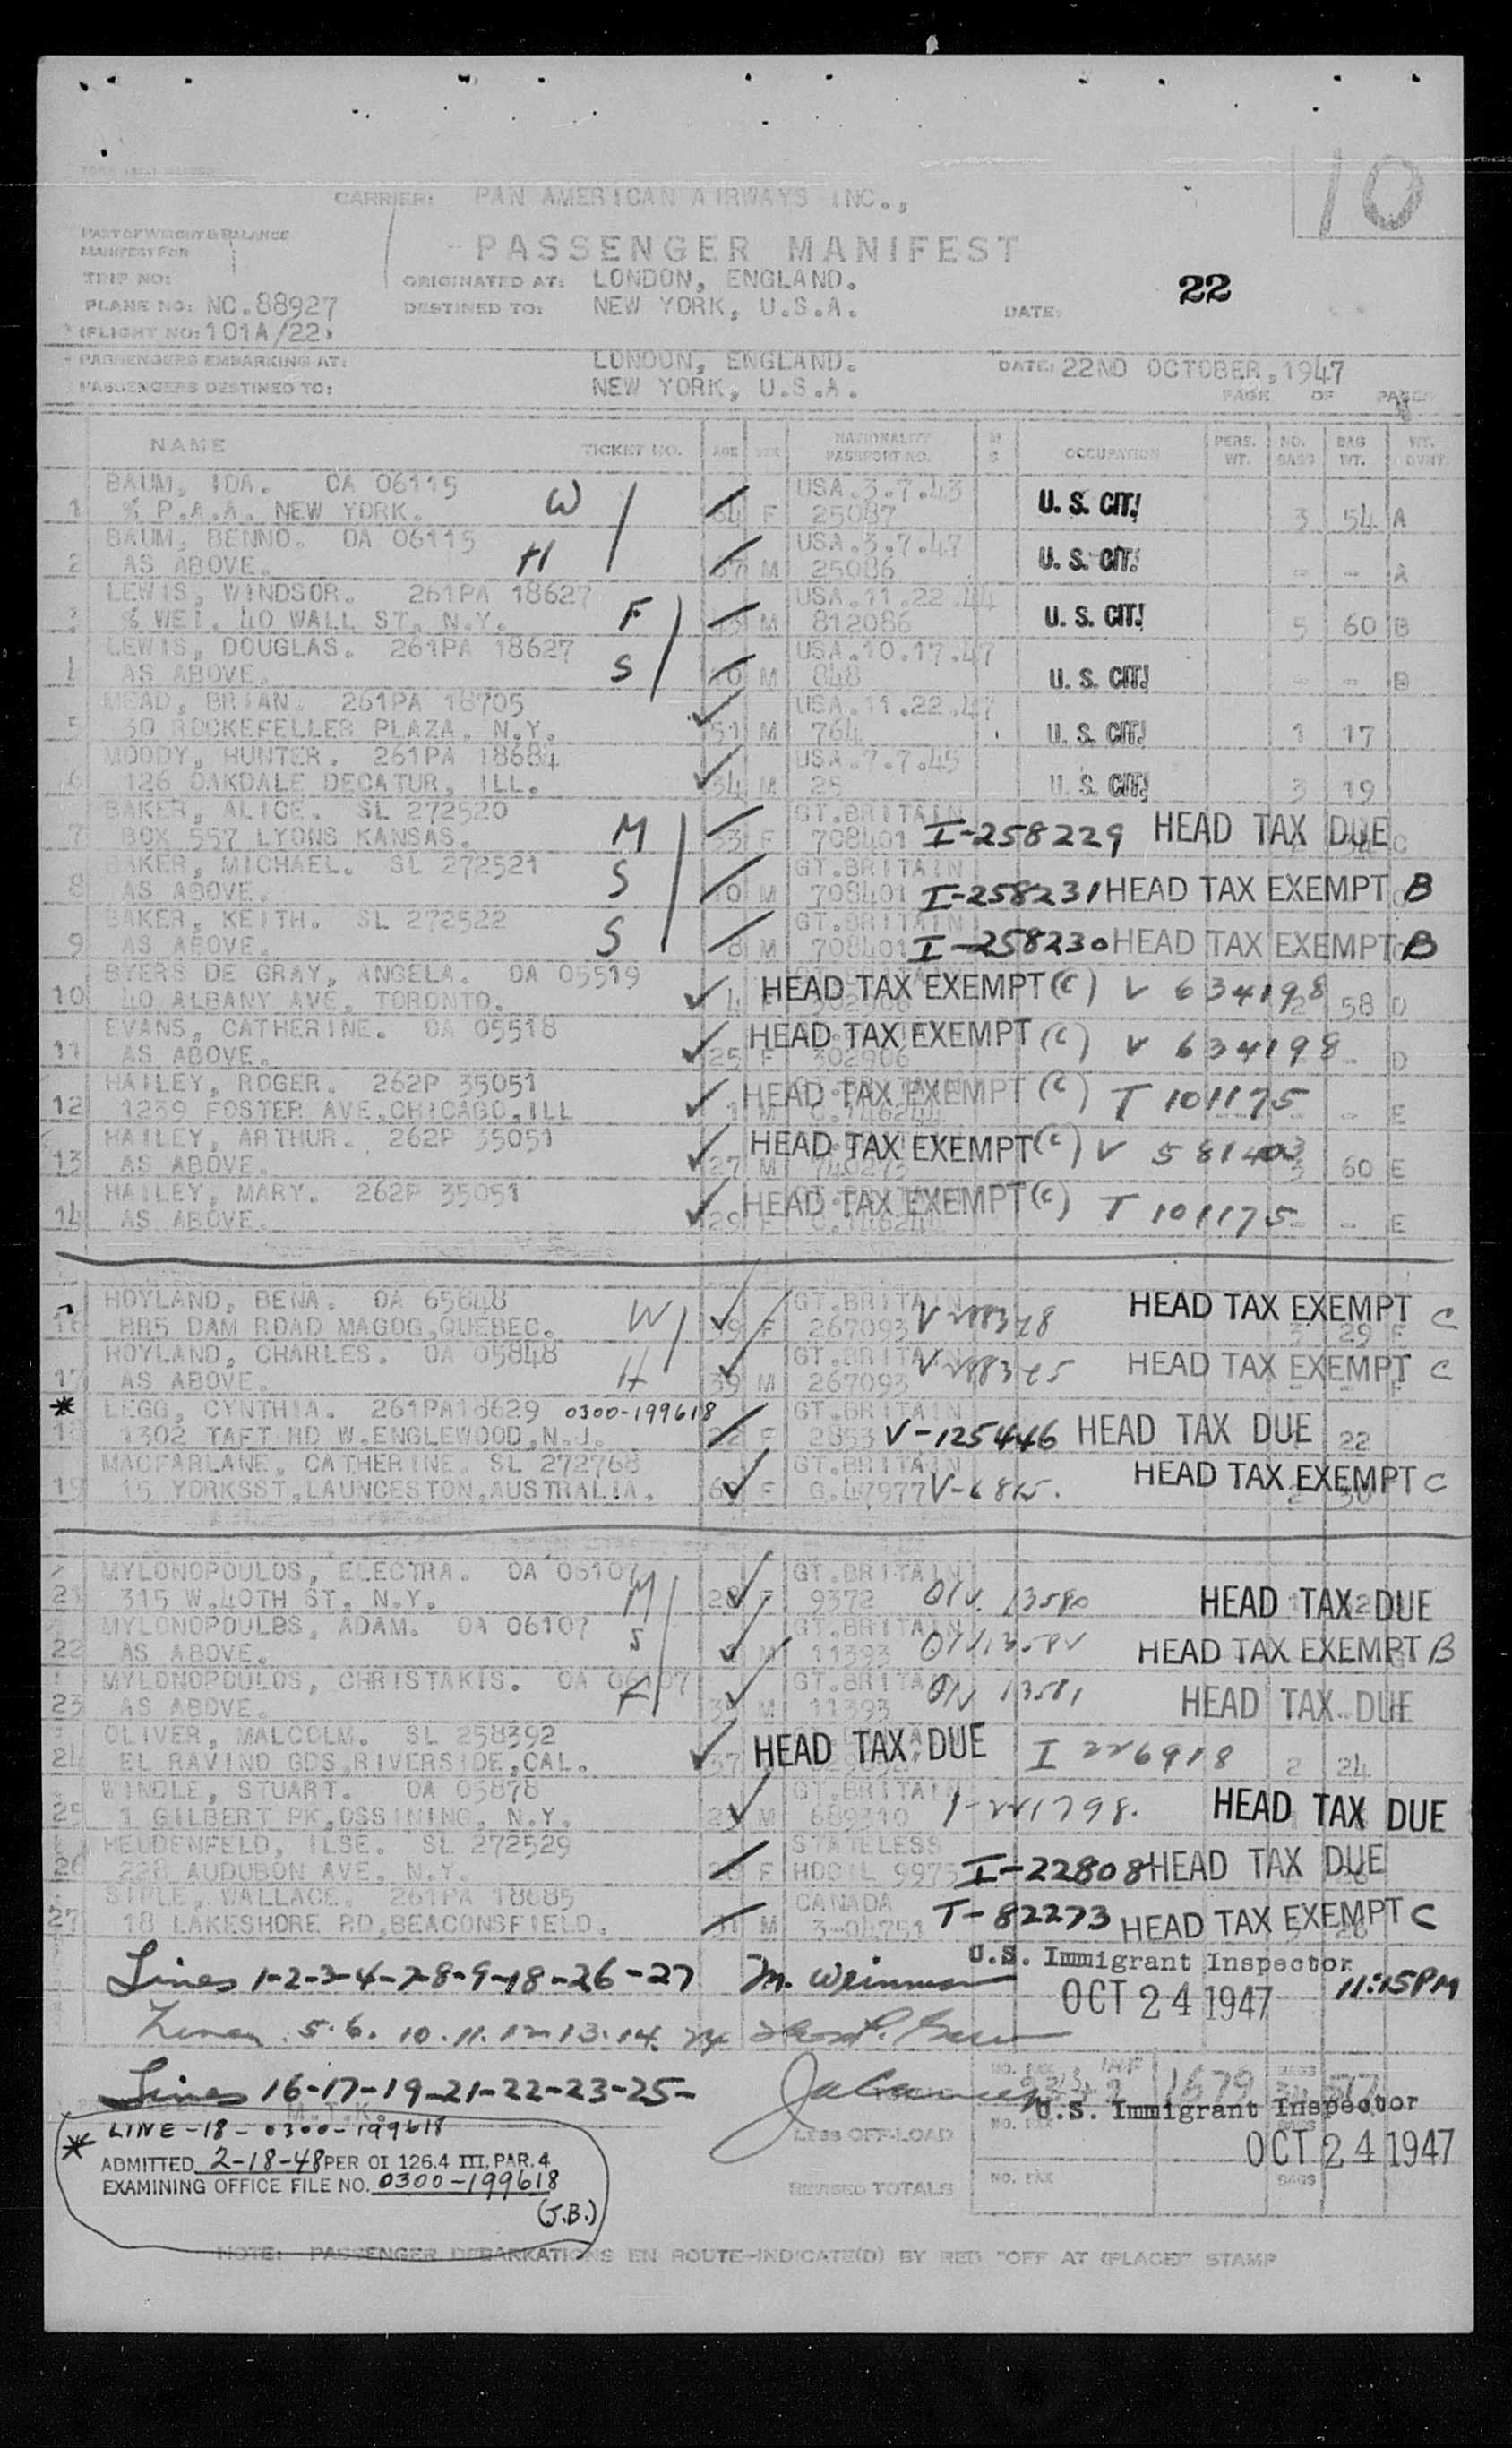 10
CARRIER: PAN AMERICAN AIRWAYS INC.,
PART OF WEIGHT & BALANCE
MANIFEST FOR
PASSENGER MANIFEST
TRIP NO:
ORIGINATED AT: LONDON, ENGLAND.
22
PLANE NO: NC.88927
DESTINED TO: NEW YORK, U.S.A.
DATE:
(FLIGHT NO: 101A/22)
PASSENGERS EMBARKING AT: LONDON, ENGLAND. DATE: 22ND OCTOBER, 1947
PASSENGERS DESTINED TO: NEW YORK, U.S.A. PAGE OF PAGES
NAME TICKET NO. AGE SEX NATIONALITY PASSPORT NO. M S OCCUPATION PERS. WT. NO. BAGS BAG WT. WT. GVMT.
BAUM, IDA. OA 06115 W USA.3.7.43 U. S. CIT!
1 % P.A.A. NEW YORK. 64 F 25087 3 54 A
BAUM, BENNO. OA 06115 H USA.3.7.47 U. S. CIT!
2 AS ABOVE. 67 M 25086 - - A
LEWIS, WINDSOR. 261PA 18627 F USA.11.22.44 U. S. CIT!
% WEI, 40 WALL ST, N.Y. M 812086 5 60 B
LEWIS, DOUGLAS. 261PA 18627 S USA.10.17.47 U. S. CIT!
4 AS ABOVE. M 848 - - B
MEAD, BRIAN. 261PA 18705 USA.11.22.47
5 30 ROCKEFELLER PLAZA, N.Y. 51 M 764 U. S. CIT! 1 17
MOODY, HUNTER. 261PA 18684 USA.7.7.45
6 126 OAKDALE DECATUR, ILL. 34 M 25 U. S. CIT! 3 19
BAKER, ALICE. SL 272520 GT.BRITAIN
7 BOX 557 LYONS KANSAS. M 33 F 708401 I-258229 HEAD TAX DUE C
BAKER, MICHAEL. SL 272521 GT.BRITAIN
8 AS ABOVE. S 10 M 708401 I-258231 HEAD TAX EXEMPT B
BAKER, KEITH. SL 272522 GT.BRITAIN
9 AS ABOVE. S 8 M 708401 I-258230 HEAD TAX EXEMPT B
BYERS DE GRAY, ANGELA. OA 05519
10 40 ALBANY AVE, TORONTO. 4 HEAD TAX EXEMPT (C) V 634198 2 58 D
EVANS, CATHERINE. OA 05518
11 AS ABOVE. 25 F 302906 HEAD TAX EXEMPT (C) V 634198 - D
HAILEY, ROGER. 262P 35051
12 1239 FOSTER AVE,CHICAGO,ILL 1 M C.146244 HEAD TAX EXEMPT (C) T 101175 - E
HAILEY, ARTHUR. 262P 35051
13 AS ABOVE. 27 M 740273 HEAD TAX EXEMPT (C) V 581403 3 60 E
HAILEY, MARY. 262P 35051
14 AS ABOVE. 29 F C.146244 HEAD TAX EXEMPT (C) T 101175 - - E
HOYLAND, BENA. OA 65848 GT.BRITAIN
16 HR5 DAM ROAD MAGOG,QUEBEC. W 39 F 267093 HEAD TAX EXEMPT C 3 29 F
HOYLAND, CHARLES. OA 05848 GT.BRITAIN
17 AS ABOVE. H 39 M 267093 HEAD TAX EXEMPT C
* LEGG, CYNTHIA. 261PA18629 0300-199618 GT.BRITAIN
18 1302 TAFT RD W.ENGLEWOOD,N.J. 22 F 2853 V-125446 HEAD TAX DUE 22
MACFARLANE, CATHERINE. SL 272768 GT.BRITAIN
19 15 YORKSST,LAUNCESTON,AUSTRALIA. F G.47977 HEAD TAX EXEMPT C
MYLONOPOULOS, ELECTRA. OA 06107 GT.BRITAIN
21 315 W.40TH ST, N.Y. M 28 F 9372 13580 HEAD TAX DUE
MYLONOPOULBS, ADAM. OA 06107 GT.BRITAIN
22 AS ABOVE. S M 11393 HEAD TAX EXEMPT B
MYLONOPOULOS, CHRISTAKIS. OA 06107 GT.BRITAIN
23 AS ABOVE. F M 11393 13581 HEAD TAX DUE
OLIVER, MALCOLM. SL 258392
24 EL RAVINO GDS,RIVERSIDE,CAL. 37 HEAD TAX DUE I 226918 2 24
WINDLE, STUART. OA 05878 GT.BRITAIN
25 1 GILBERT PK,OSSINING, N.Y. M 689310 I-221798. HEAD TAX DUE
HEUDENFELD, ILSE. SL 272529 STATELESS
26 228 AUDUBON AVE, N.Y. F HOCIL 9975 I-22808 HEAD TAX DUE
SIPLE, WALLACE. 261PA 18685 CANADA
27 18 LAKESHORE RD,BEACONSFIELD. 31 M 3-04751 T-82273 HEAD TAX EXEMPT C
Lines 1-2-3-4-7-8-9-18-26-27 M. Weinman U.S. Immigrant Inspector 11:15PM
OCT 24 1947
Lines 5.6. 10.11.12.13.14. 24
Lines 16-17-19-21-22-23-25-
1679
U.S. Immigrant Inspector
M.T.K.
* LINE-18-0300-199618
LESS OFF-LOAD NO. PAX
OCT 24 1947
ADMITTED 2-18-48 PER OI 126.4 III, PAR. 4
EXAMINING OFFICE FILE NO. 0300-199618
REVISED TOTALS NO. PAX BAGS
(J.B.)
NOTE: PASSENGER DEBARKATIONS EN ROUTE-INDICATE(D) BY RED "OFF AT (PLACE)" STAMP